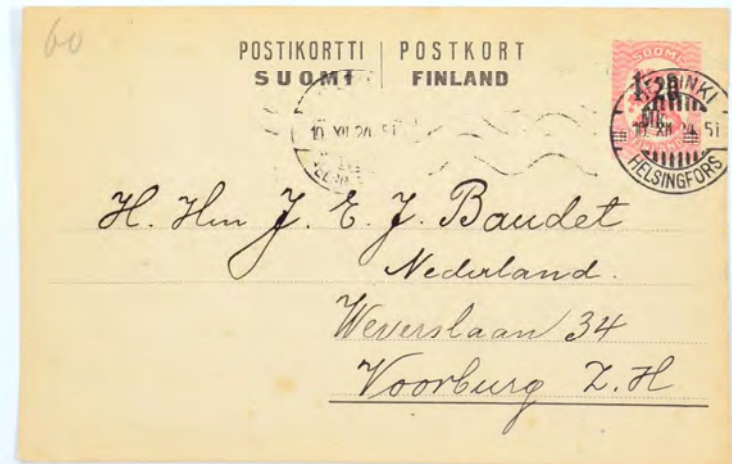 60
POSTIKORTTI | POSTKORT
SUOMI | FINLAND
SUOMI
1:20
MK
FINLAND
HELSINKI
10. XII 24. 51
HELSINGFORS
10. XII 24. 51
H. Hrn J. E. J. Baudet
Nederland.
Weverslaan 34
Voorburg Z.H